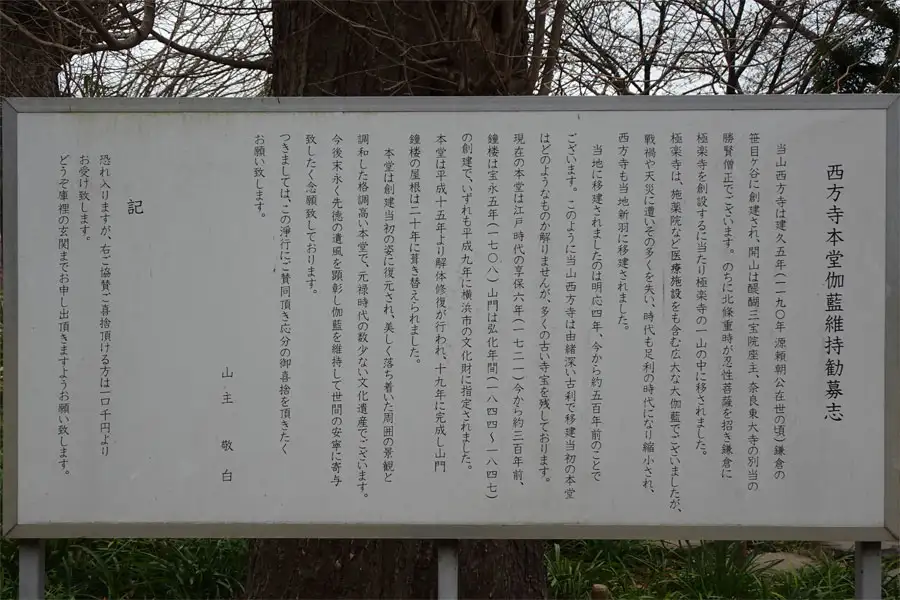 西方寺本堂伽藍維持勧募志
当山西方寺は建久五年(一一九〇年 源頼朝公在世の頃)鎌倉の
笹目ヶ谷に創建され、開山は醍醐三宝院座主、奈良東大寺の別当の
勝賢僧正でございます。のちに北條重時が忍性菩薩を招き鎌倉に
極楽寺を創設するに当たり極楽寺の一山の中に移されました。
極楽寺は、施薬院など医療施設をも含む広大な大伽藍でございましたが、
戦禍や天災に遭いその多くを失い、時代も足利の時代になり縮小され、
西方寺も当地新羽に移建されました。
当地に移建されましたのは明応四年、今から約五百年前のことで
ございます。このように当山西方寺は由緒深い古刹で移建当初の本堂
はどのようなものか解りませんが、多くの古い寺宝を残しております。
現在の本堂は江戸時代の享保六年(一七二一)今から約三百年前、
鐘楼は宝永五年(一七〇八)山門は弘化年間(一八四四~一八四七)
の創建で、いずれも平成九年に横浜市の文化財に指定されました。
本堂は平成十五年より解体修復が行われ、十九年に完成し山門
鐘楼の屋根は二十年に葺き替えられました。
本堂は創建当初の姿に復元され、美しく落ち着いた周囲の景観と
調和した格調高い本堂で、元禄時代の数少ない文化遺産でございます。
今後末永く先徳の遺風を顕彰し伽藍を維持して世間の安寧に寄与
致したく念願致しております。
つきましては、この浄行にご賛同頂き応分の御喜捨を頂きたく
お願い致します。
山主 敬白
記
恐れ入りますが、右ご協賛ご喜捨頂ける方は一口千円より
お受け致します。
どうぞ庫裡の玄関までお申し出頂きますようお願い致します。